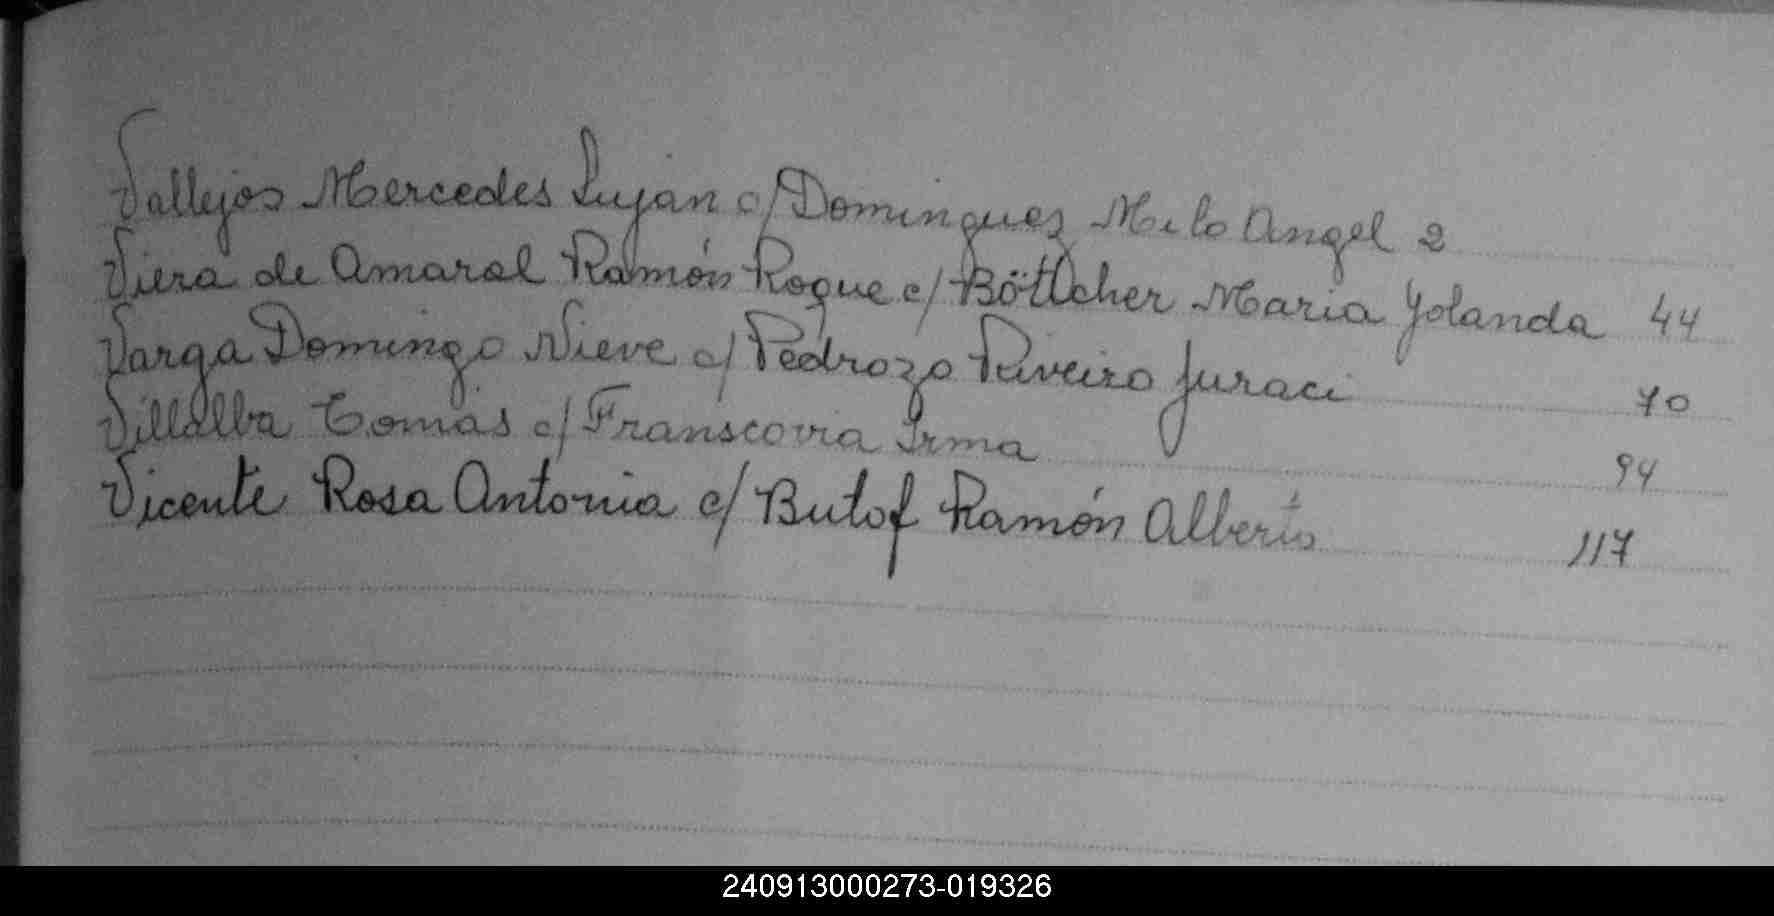 Vallejos Mercedes Lujan c/ Dominguez Milo Angel 2
Viera de Amaral Ramón Roque c/ Böttcher Maria Yolanda 44
Varga Domingo Nieve c/ Pedrozo Riveiro Juraci 70
Villalba Tomás c/ Franscovia Irma 94
Vicente Rosa Antonia c/ Butof Ramón Alberto 117
240913000273-019326